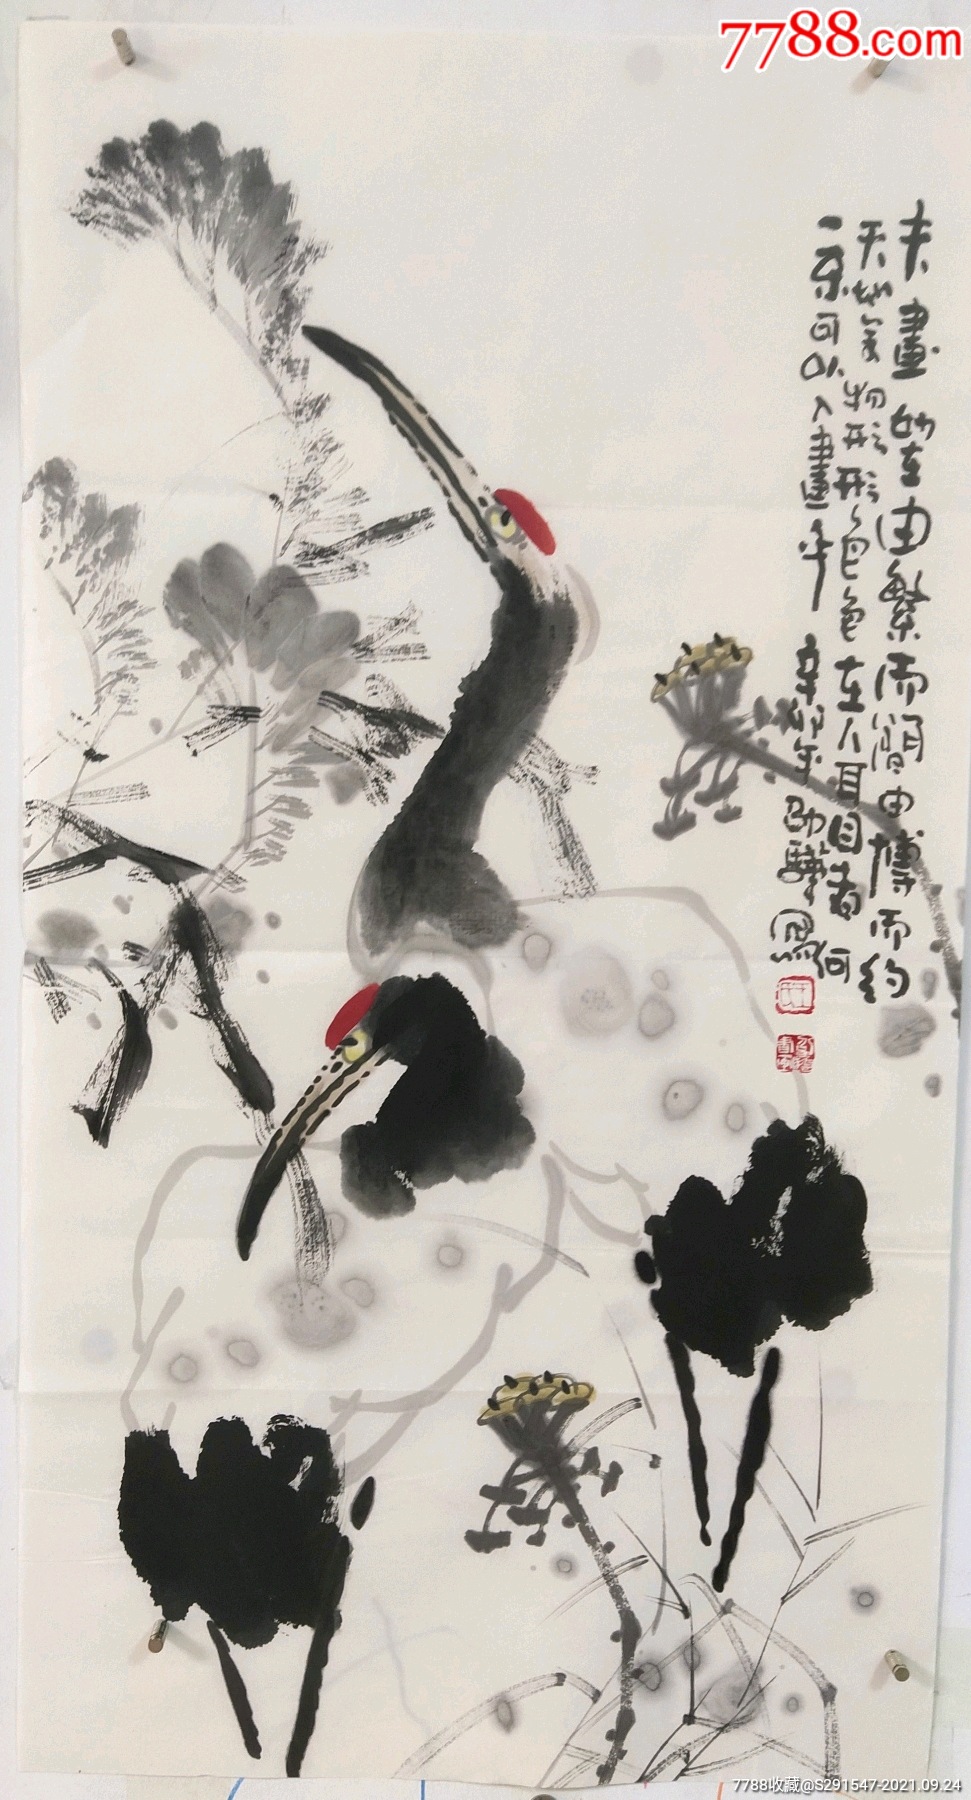 7788.com
夫畫皆由繁而簡由博而約
天地万物形形色色在人耳目者何
一不可以入畫乎
辛丑年
寫
7788收藏@S291547-2021.09.24